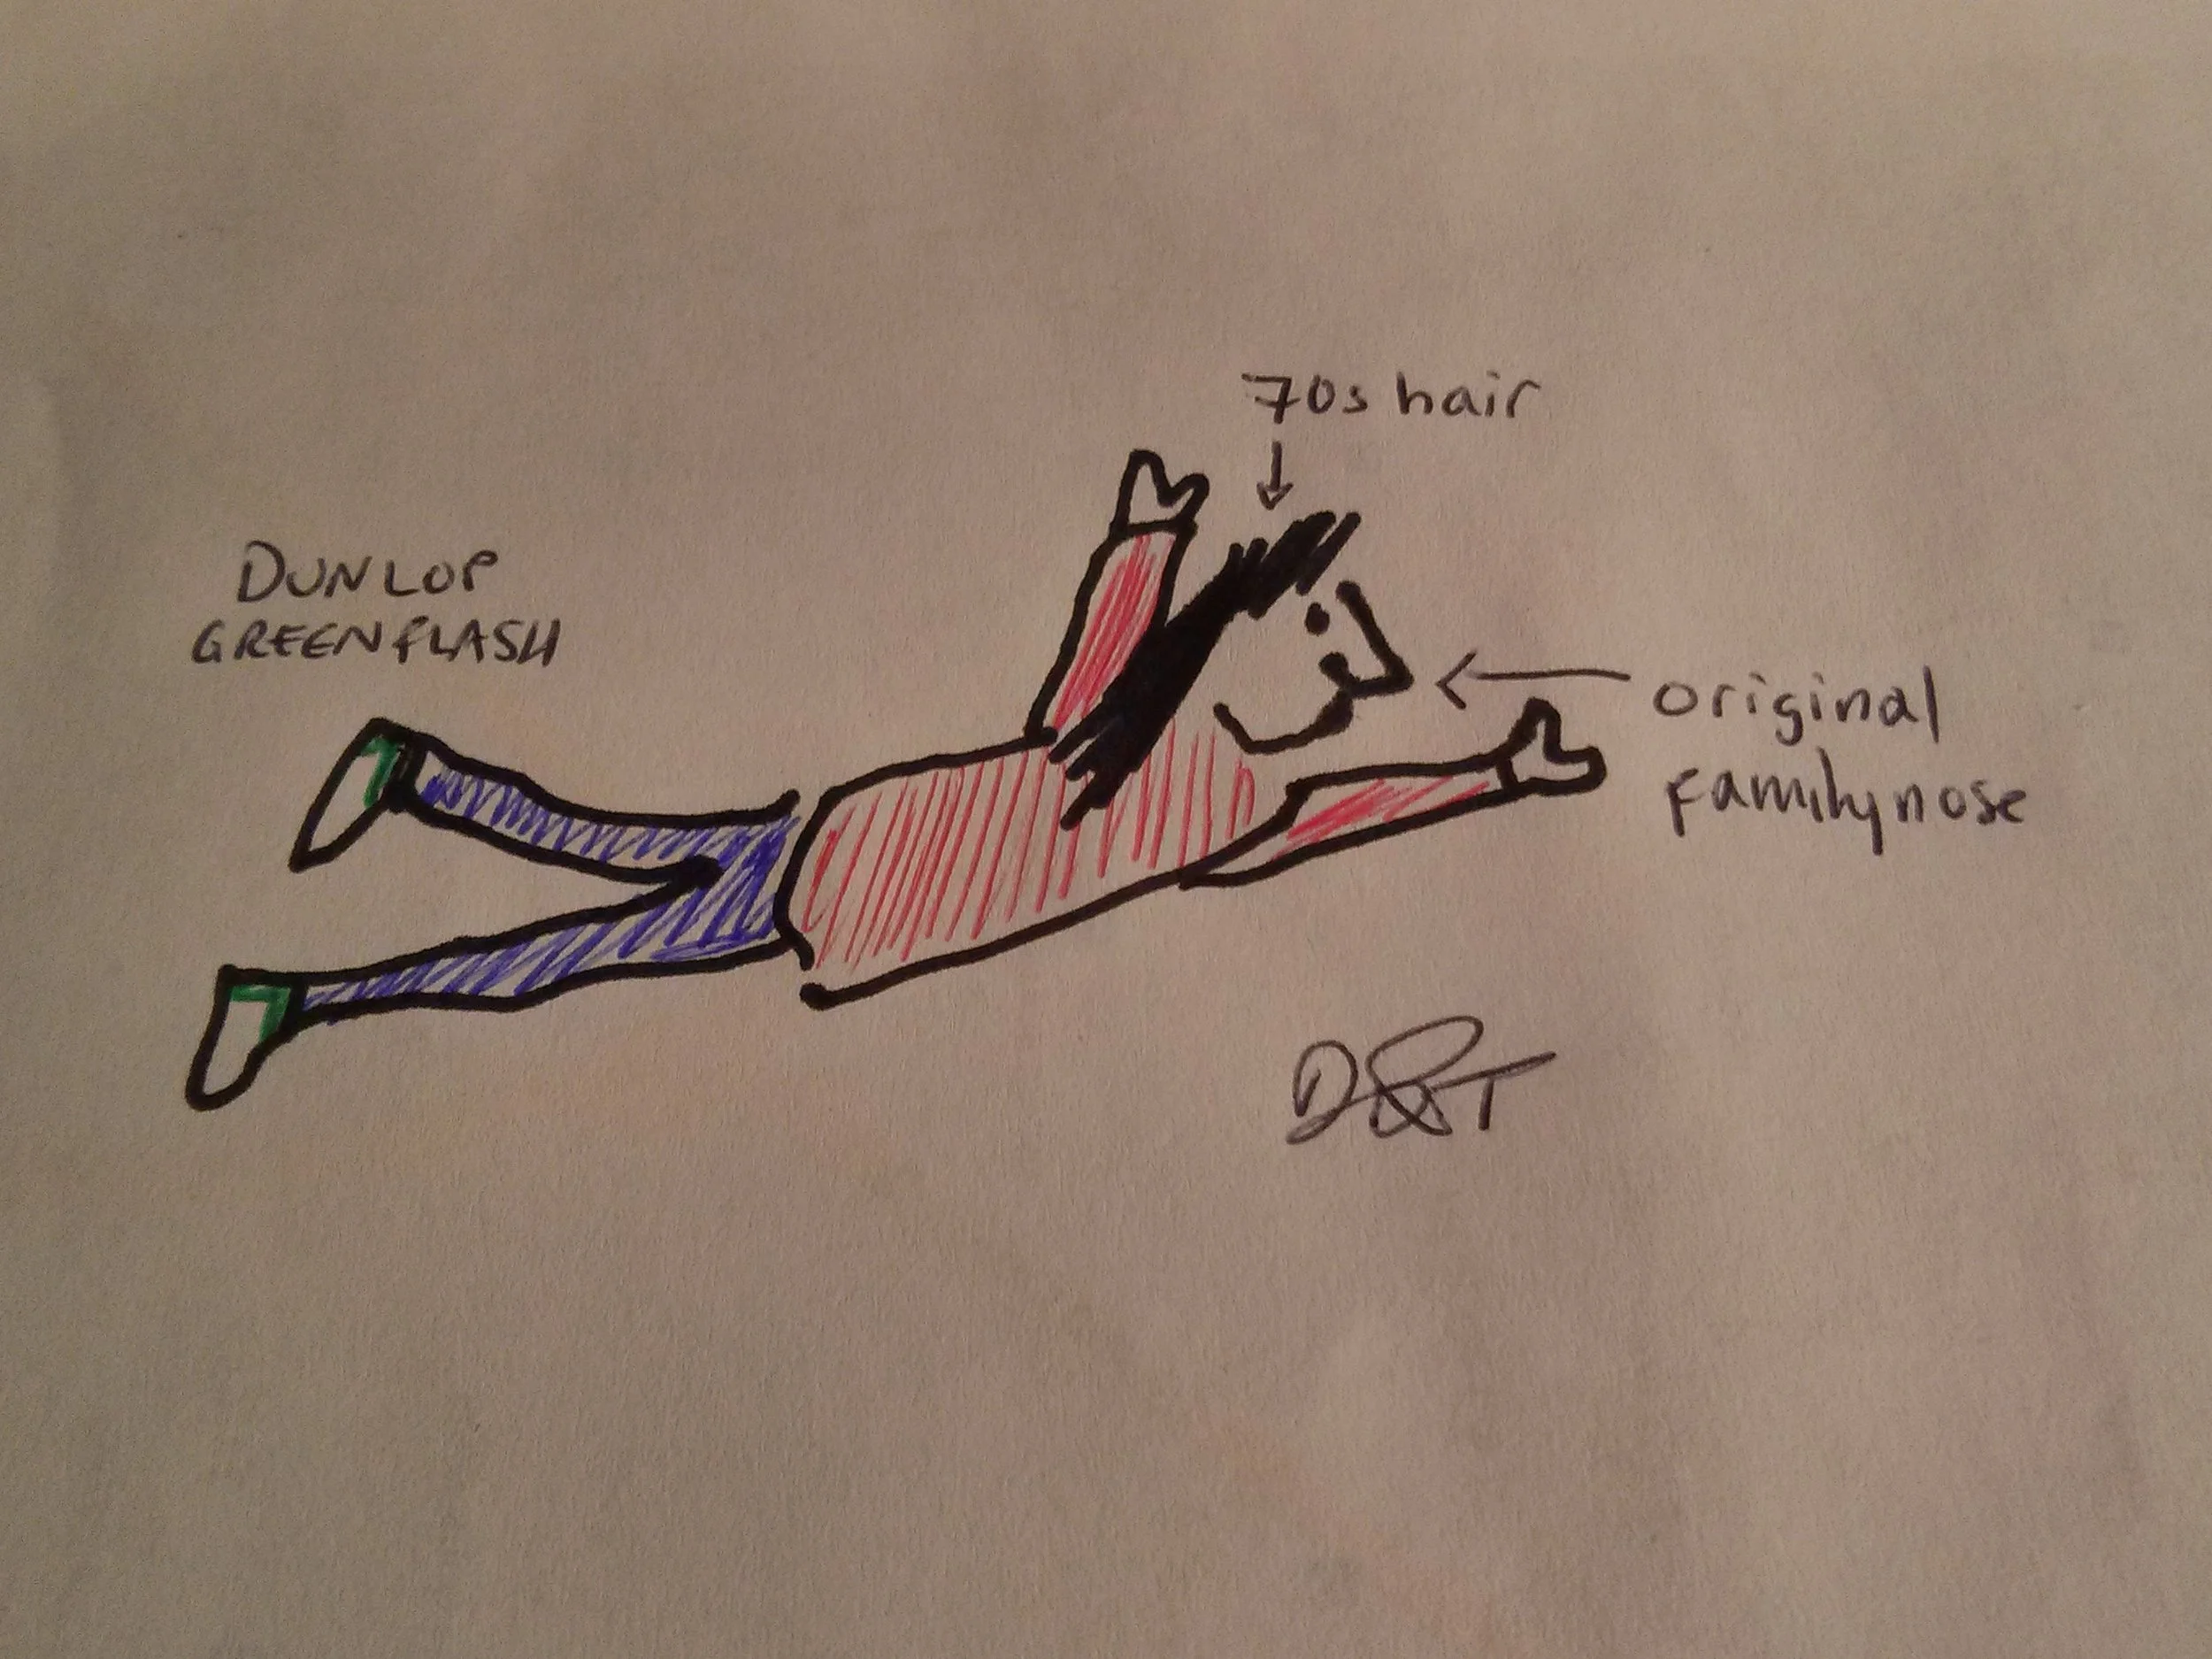 70s hair
DUNLOP
GREENFLASH
original
family nose